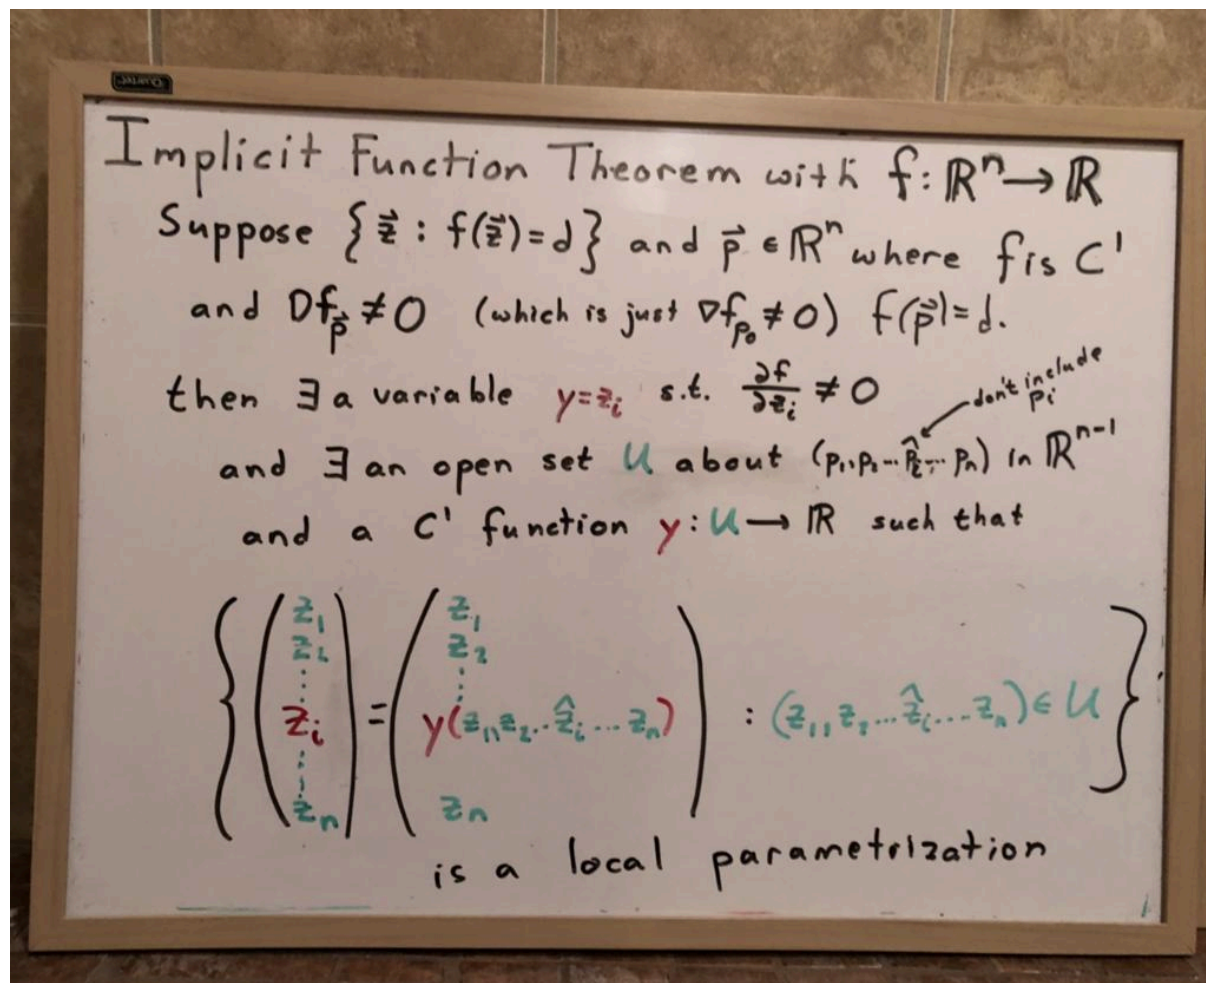 Quartet
Implicit Function Theorem with f: ℝⁿ → ℝ
Suppose {z⃗ : f(z⃗) = d} and p⃗ ∈ ℝⁿ where f is C¹
and Df_p⃗ ≠ 0 (which is just ∇f_p₀ ≠ 0) f(p⃗) = d.
then ∃ a variable y = zᵢ s.t. ∂f/∂zᵢ ≠ 0
don't include pᵢ
and ∃ an open set U about (p₁, p₂ ... p̂ᵢ ... pₙ) in ℝⁿ⁻¹
and a C¹ function y: U → ℝ such that
{ ( z₁ z₂ ⋮ zᵢ ⋮ zₙ ) = ( z₁ z₂ ⋮ y(z₁, z₂ .. ẑᵢ ... zₙ) zₙ ) : (z₁, z₂ ... ẑᵢ ... zₙ) ∈ U }
is a local parametrization